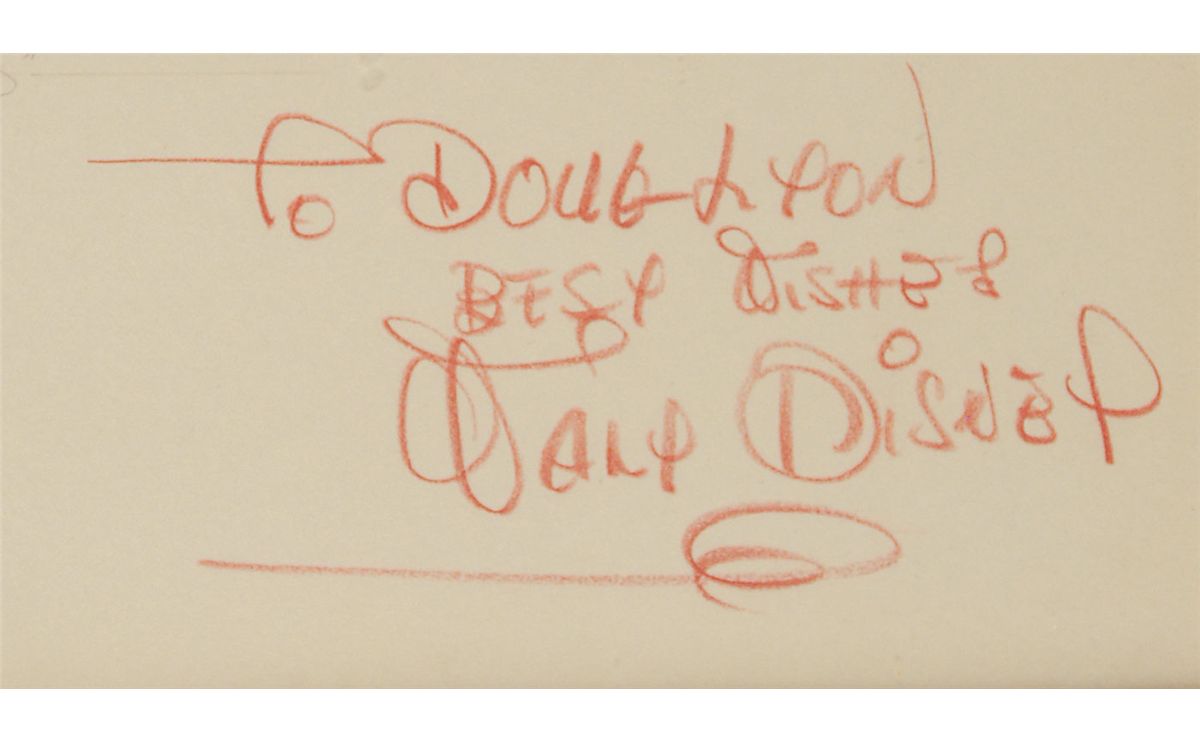 To DOUG LYON
BEST WISHES
WALT DISNEY